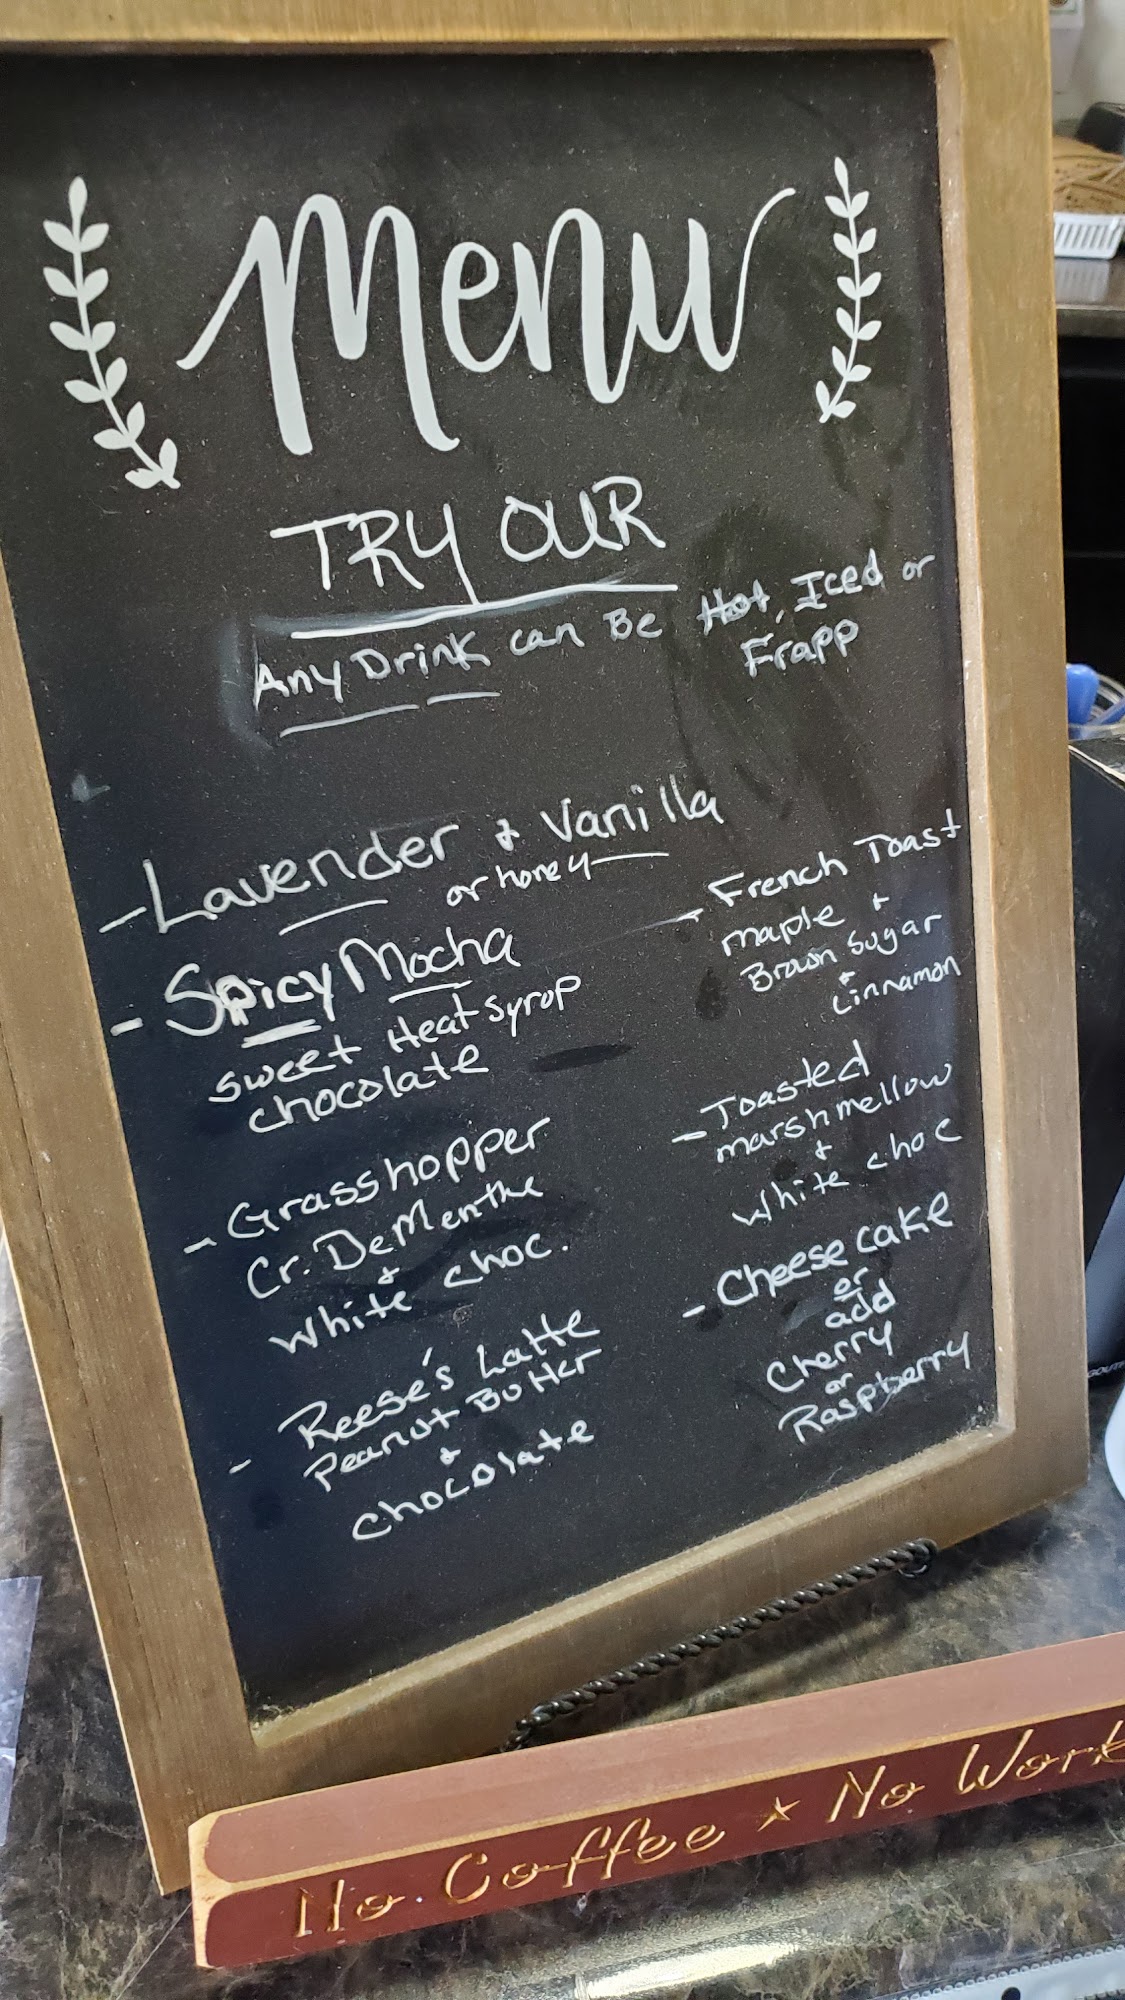 Menu
TRY OUR
Any Drink can Be Hot, Iced or
Frapp
- Lavender + Vanilla
or honey
- Spicy Mocha
sweet Heat syrop
chocolate
- Grasshopper
Cr. De Menthe
+
white choc.
- Reese's Latte
Peanut Butter
+
chocolate
- French Toast
maple +
Brown Sugar
+
Cinnamon
- Toasted
marshmellow
+
white choc
- Cheese cake
or
add
Cherry
or
Raspberry
No Coffee ★ No Work